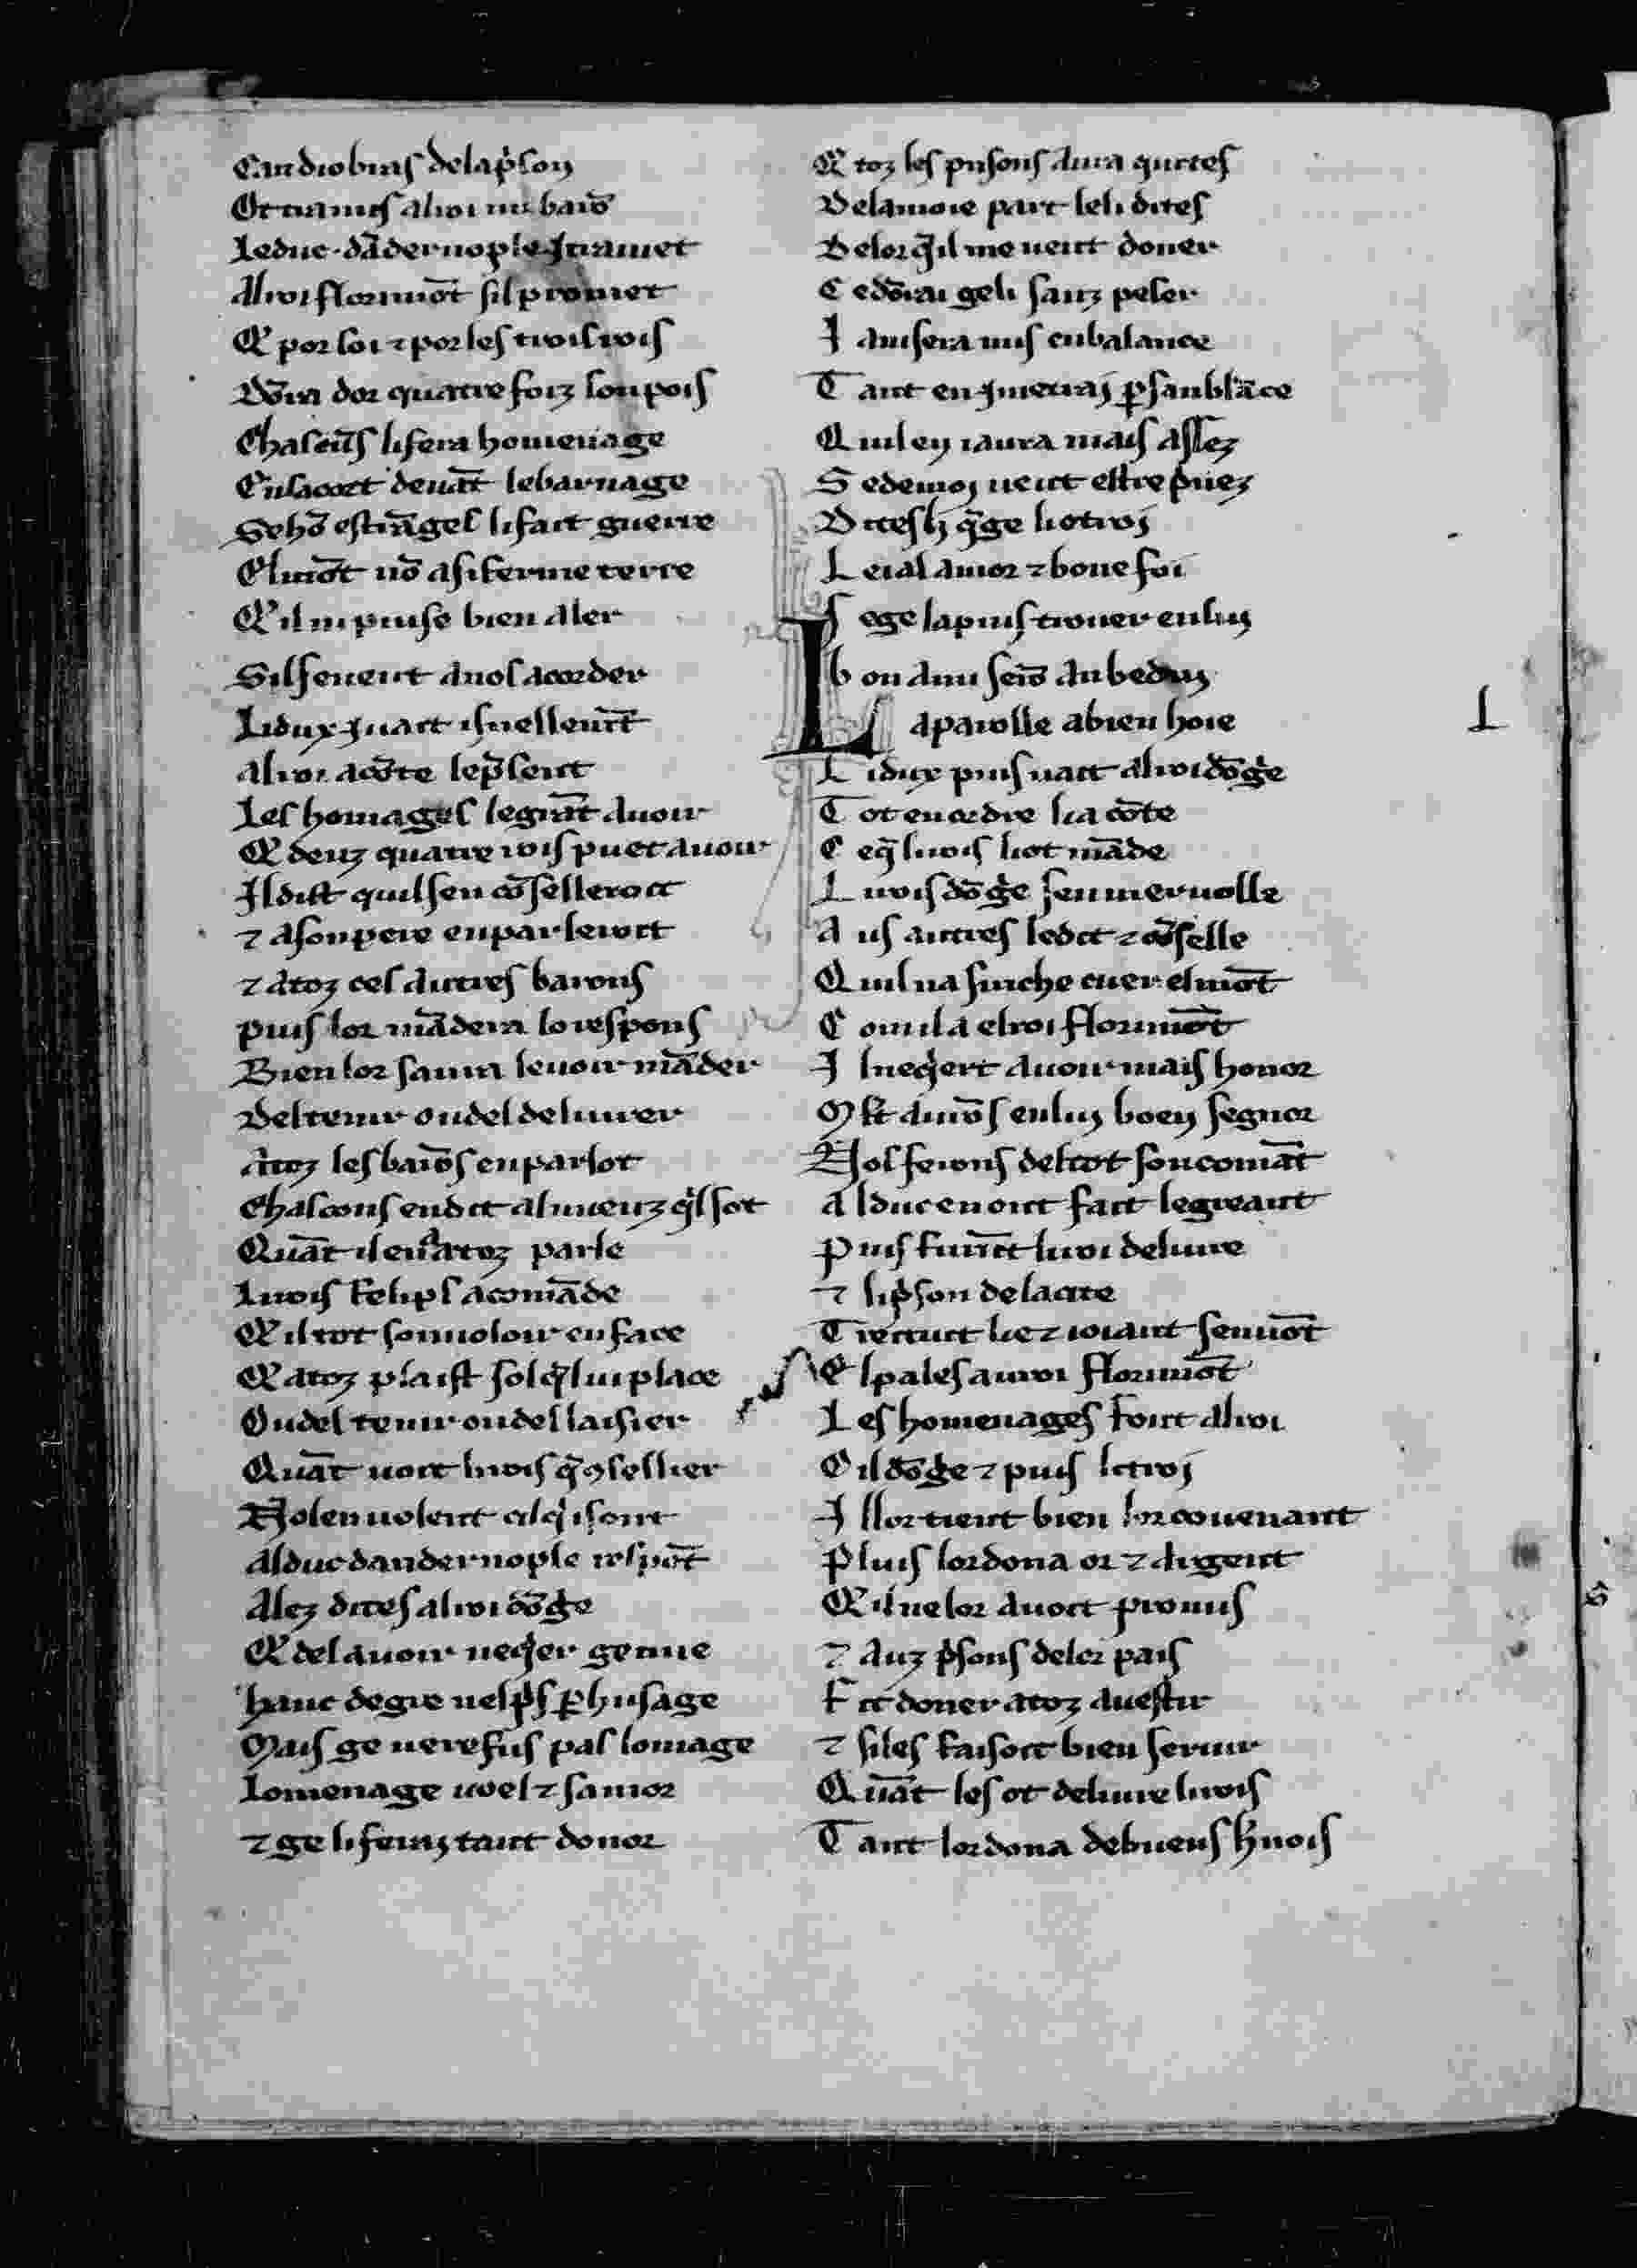 Candiobras delap̃son
Octriames alroi mi barõ
Leduc dãdernople ꝯtramet
Alroi florimõt silpromet
Q̃ por soi ⁊ por les trois rois
Dõra dor quatre foiz son pois
Chascũs lifera homenage
Enlacort deuãt lebarnage
Seꝯ hõ estrãges lifait guerre
El mõt nõ asi ferme terre
Q̃ il ni puise bien aler
Silseueut auos acorder
Lidux ꝯuait isnellemẽt
Alroi acõte lep̃sent
Les homages legrãt auoir
Q̃ deuz quatre rois puet auoir
Il dist quil sen cõselleroit
⁊ asonpere enparleroit
⁊ atoz ces autres barons
puis lor mãdera lo respons
Bien lor saura leuoir mãder
Deltenir oudel deliurer
Atoz les barõs enparlot
Chascons endit almieuz q̃l sot
Quãt il en a atoz parle
Lirois felips acomãde
Q̃ il tot sonuoloir enface
Q̃ atoz plaist sol q̃ lui place
Oudel tenir oudel laisier
Quãt uoit lirois q̃ ꝯsellier
Nolen uolent cil q̃ i sont
Alduc dandernople respõt
Alez dites alroi dõge
Q̃ del auoir neq̃er gemie
hanc degre nelp̃s ꝑ husage
Mais ge nerefus pas lomage
Lomenage uoel ⁊ samor
⁊ ge liferai tant donor
Q̃ toz les prisons aura quites
Delamoie part leli dites
Delor q̃il me ueut doner
Cedõrai geli sanz peser
Ia nisera mis enbalance
Tant en ꝯmetrai ꝑ sanblãce
Quil en iaura mais assez
Sedemoi ueut estre priuez
Dites li q̃ ge liotroi
Leial amor ⁊ bone foi
Sege lapuis trouer enlui
bon ami serõ anbedui
Laparolle abien hoie
Lidux puis uait alroi dõge
Tot enordre lia cõte
Ceq̃ lirois liot mãde
Lirois dõge senmeruolle
Aus autres ledit ⁊ cõselle
Quil na siriche cuer elmõt
Com il a elroi florimõt
Il neq̃ert auoir mais honor
Mlt aurõs enlui boen segnor
Nos ferons deltot soncomãt
Alduc enont fait legreant
Puis furẽt liroi deliure
⁊ lip̃son delacite
Trestuit lie ⁊ ioiant senuõt
El pales auroi florimõt
Les homenages font alroi
Cil dõge ⁊ puis litroi
Il lor tient bien lor couenant
Pluis lordona or ⁊ argent
Q̃ il nelor auoit promis
⁊ auz p̃sons delor pais
Fit doner atoz auestir
⁊ siles faisoit bien seruir
Quãt les ot deliure lirois
Tant lordona debuens h̃nois
L
S